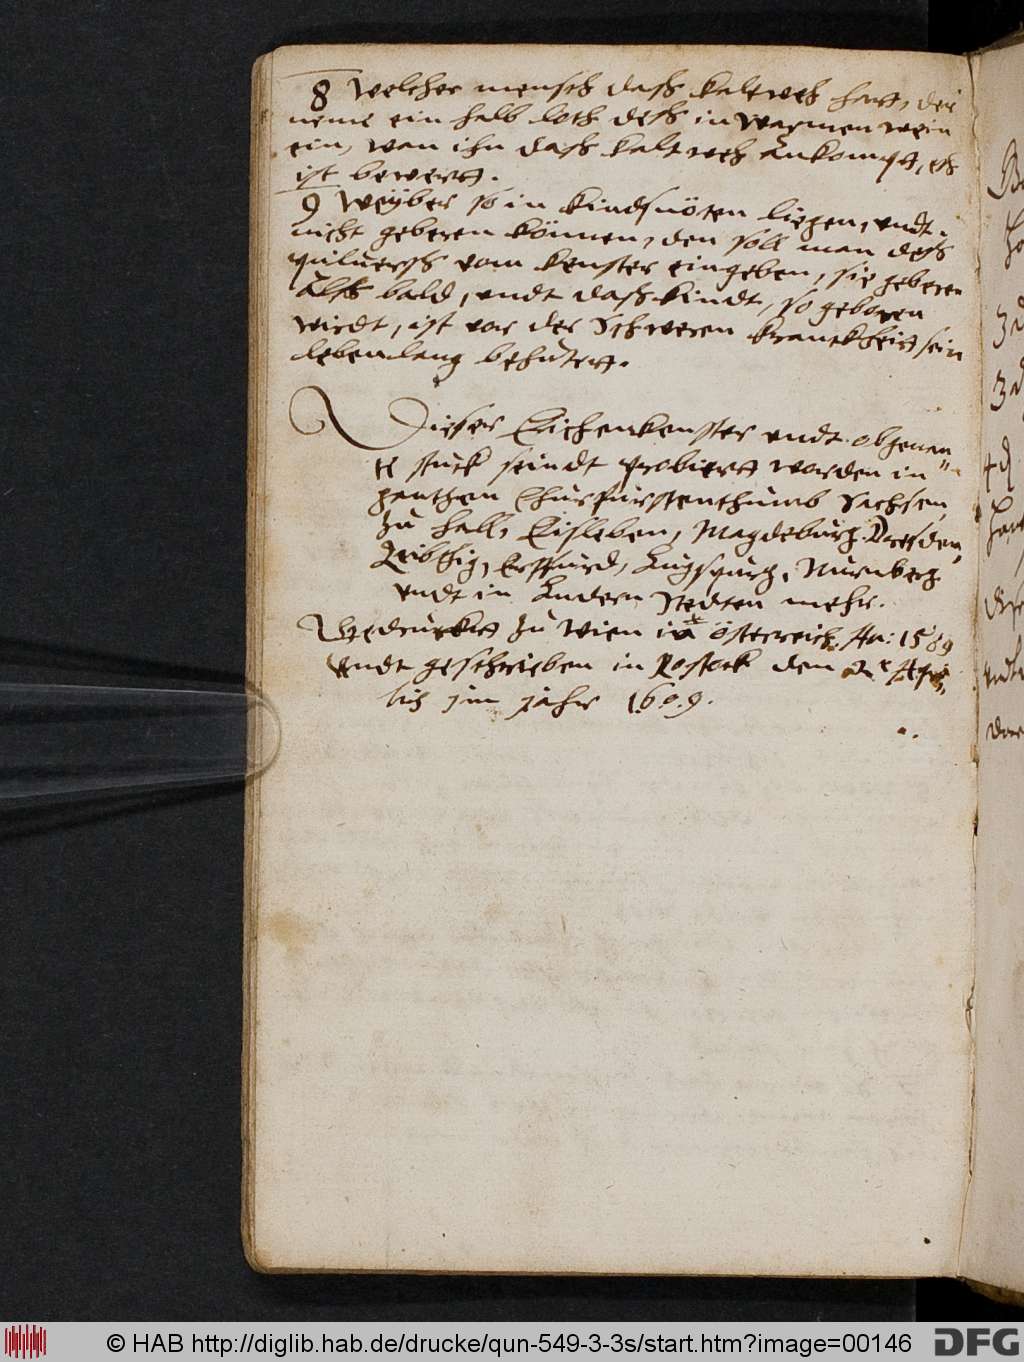 8 Welcher mensch daß kaltweh hatt, der
neme ein halb loth deß in warmen wein
ein, wan ihn daß kaltweh ankompt, eß
ist bewert.
9 Weÿber so in kindsnöten liegen, undt
nicht geberen können, den soll man deß
pulverß vom kenster eingeben, sie geberen
alß bald, undt daß kindt, so geboren
wirdt, ist vor der schweren kranckheit sein
lebenlang behütett.
Dieser Eichenkenster undt obgenan"
te stück seindt probiertt worden in
gantzen Churfürstenthumb Sachsen,
Zu Hall, Eisleben, Magdeburg. Dresden,
Leibtzig, Erffurd, Augspurg, Nürnberg
undt in Andern Stedten mehr.
Gedruckt zu Wien in österreich. An: 1589
undt geschrieben in Rostock den 2
im jahr 1609.
© HAB http://diglib.hab.de/drucke/qun-549-3-3s/start.htm?image=00146
DFG